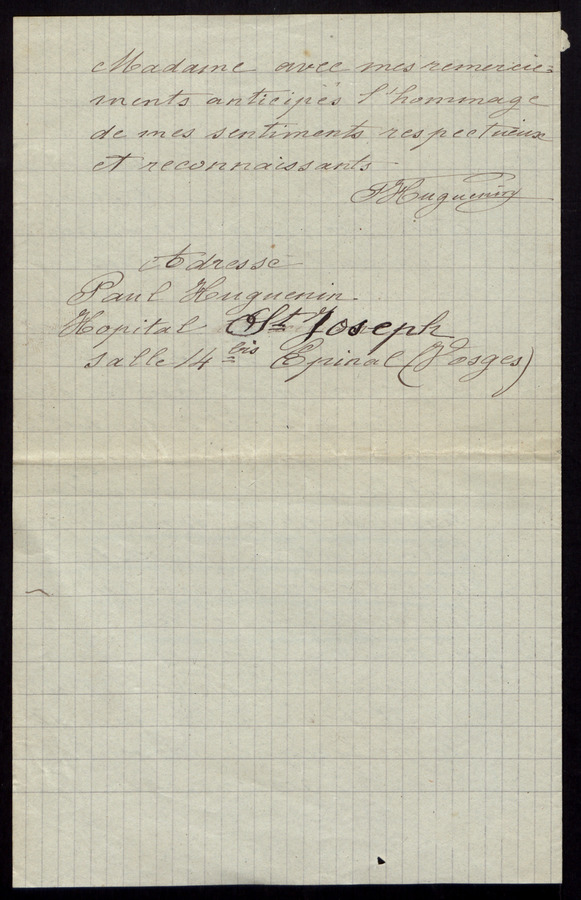 Madame avec mes remercie=
ments anticipés l'hommage
de mes sentiments respectueux
et reconnaissants
P Huguenin
Adresse
Paul Huguenin
Hopital St Joseph
Salle 14 bis Epinal (Vosges)